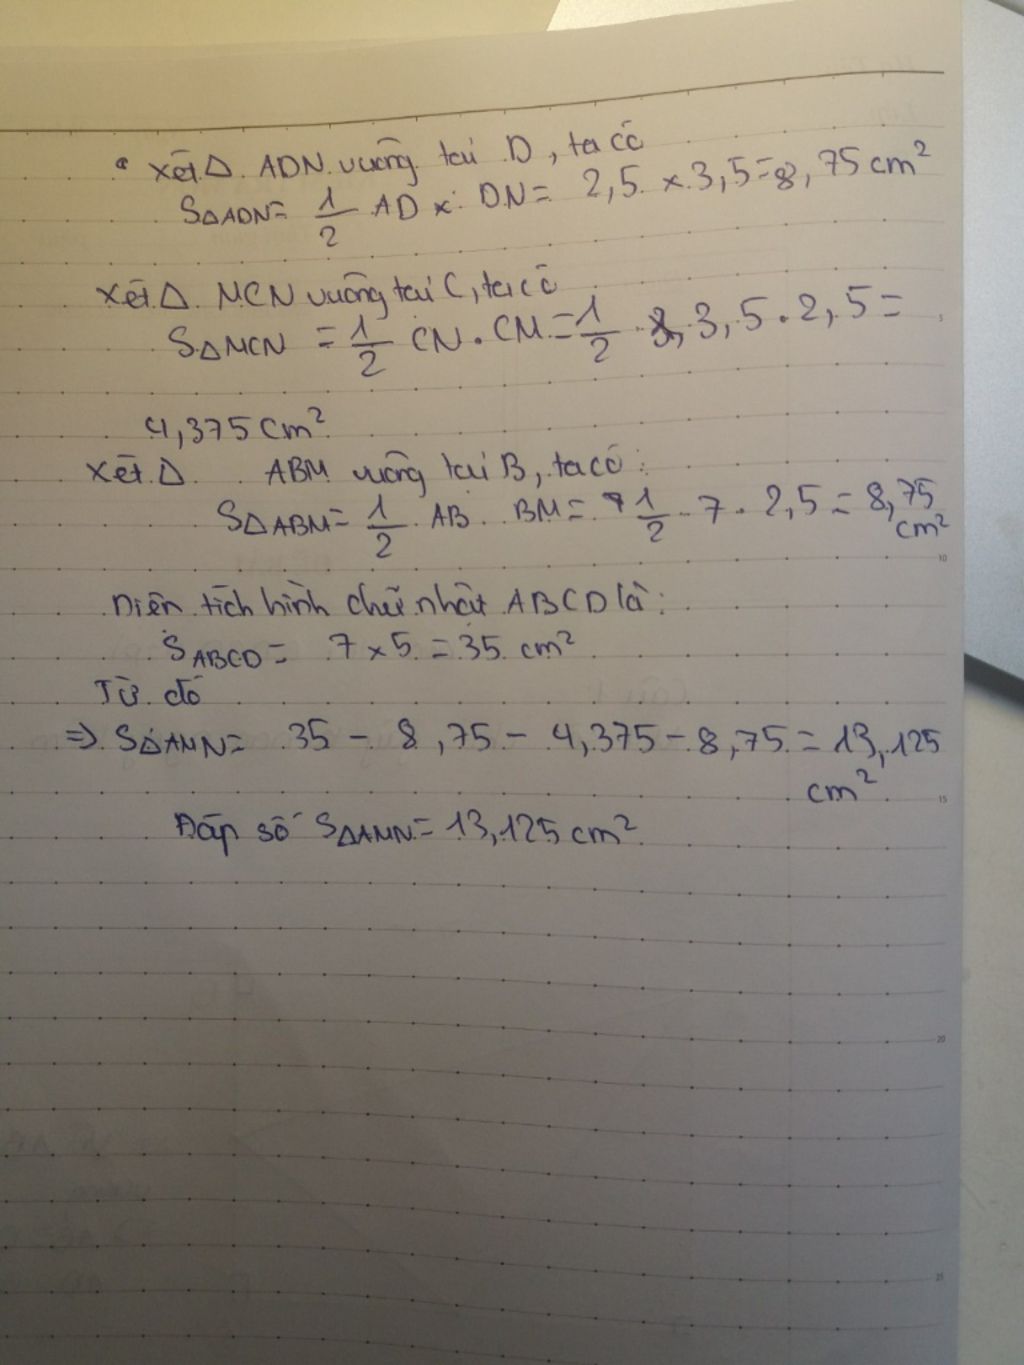 Xét Δ ADN vuông tại D, ta có
SΔADN = 1/2 AD x DN = 2,5 x 3,5 = 8,75 cm²
Xét Δ MCN vuông tại C, ta có
SΔMCN = 1/2 CN . CM = 1/2 . 3,5 . 2,5 =
4,375 cm²
Xét Δ ABM vuông tại B, ta có :
SΔABM = 1/2 . AB . BM = 1/2 . 7 . 2,5 = 8,75 cm²
Diện tích hình chữ nhật ABCD là :
SABCD = 7 x 5 = 35 cm²
Từ đó
=> SΔAMN = 35 - 8,75 - 4,375 - 8,75 = 13,125 cm²
Đáp số SΔAMN = 13,125 cm²
5
10
15
20
25